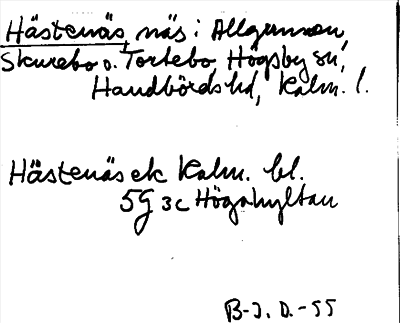 Hästenäs, näs i Allgunnen,
Skurebo o. Tortebo, Högsby sn,
Handbörds hd, Kalm. l.
Hästenäs ek Kalm. bl.
5G 3c Högahyltan
B-J. D. -55